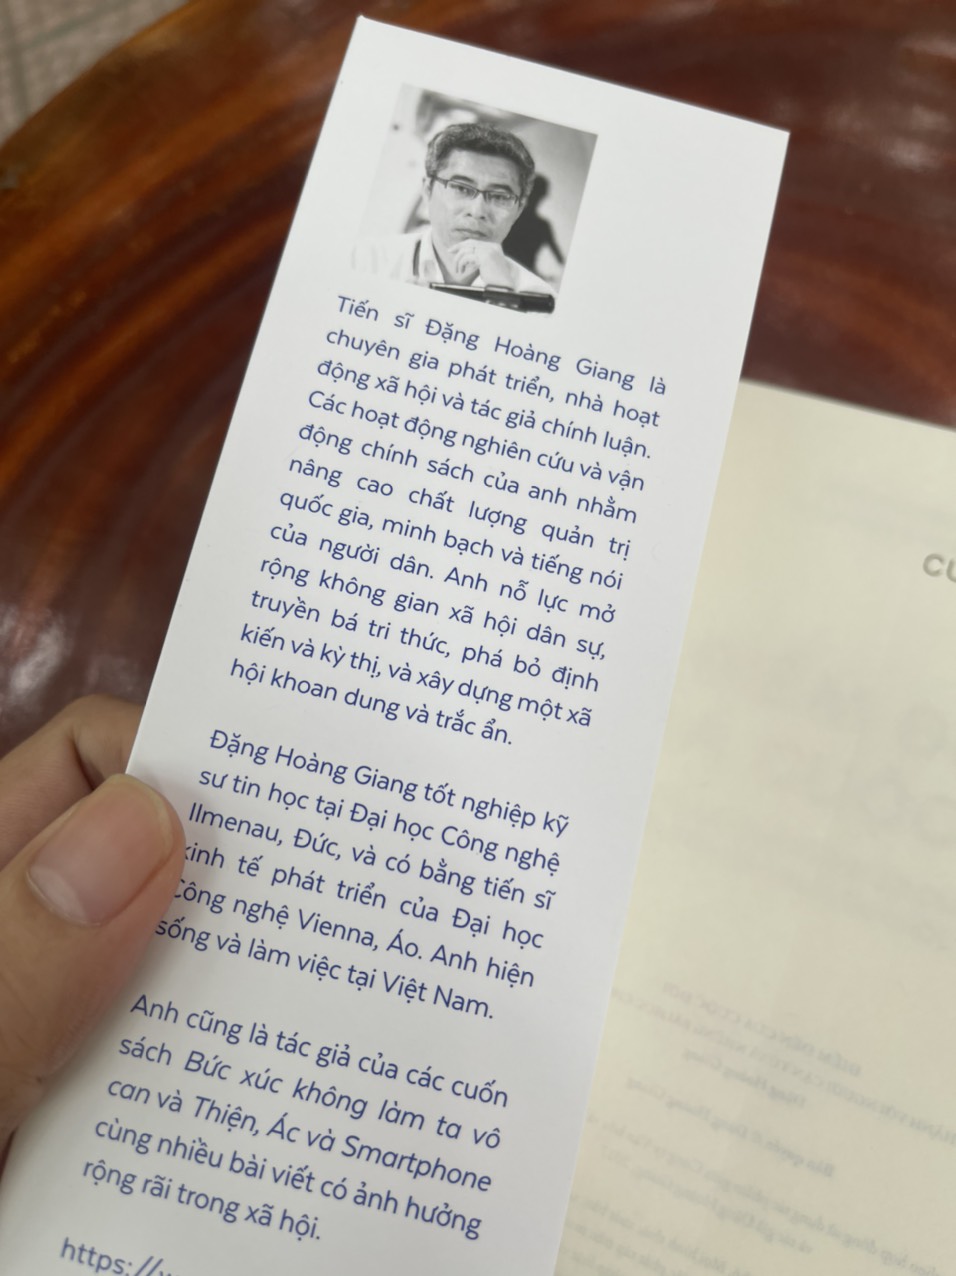 Tiến sĩ Đặng Hoàng Giang là
chuyên gia phát triển, nhà hoạt
động xã hội và tác giả chính luận.
Các hoạt động nghiên cứu và vận
động chính sách của anh nhằm
nâng cao chất lượng quản trị
quốc gia, minh bạch và tiếng nói
của người dân. Anh nỗ lực mở
rộng không gian xã hội dân sự,
truyền bá tri thức, phá bỏ định
kiến và kỳ thị, và xây dựng một xã
hội khoan dung và trắc ẩn.
Đặng Hoàng Giang tốt nghiệp kỹ
sư tin học tại Đại học Công nghệ
Ilmenau, Đức, và có bằng tiến sĩ
kinh tế phát triển của Đại học
Công nghệ Vienna, Áo. Anh hiện
sống và làm việc tại Việt Nam.
Anh cũng là tác giả của các cuốn
sách Bức xúc không làm ta vô
can và Thiện, Ác và Smartphone
cùng nhiều bài viết có ảnh hưởng
rộng rãi trong xã hội.
https://